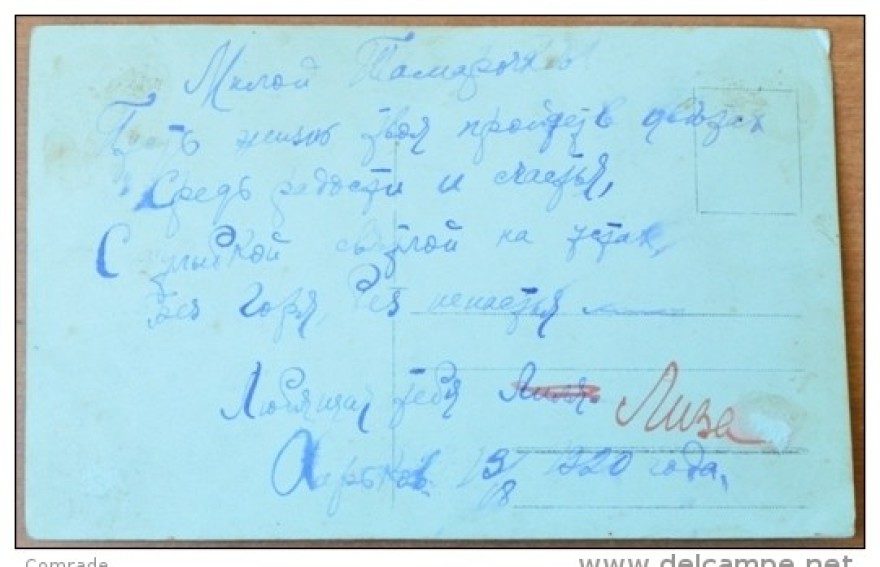 Милой Тамарочке!
Пусть жизнь твоя пройдет в цветах
Средь радости и счастья,
С улыбкой светлой на устах,
Без горя, без ненастья
Любящая тебя Лиза
Харьков 1920 года.
Comrade
www.delcampe.net